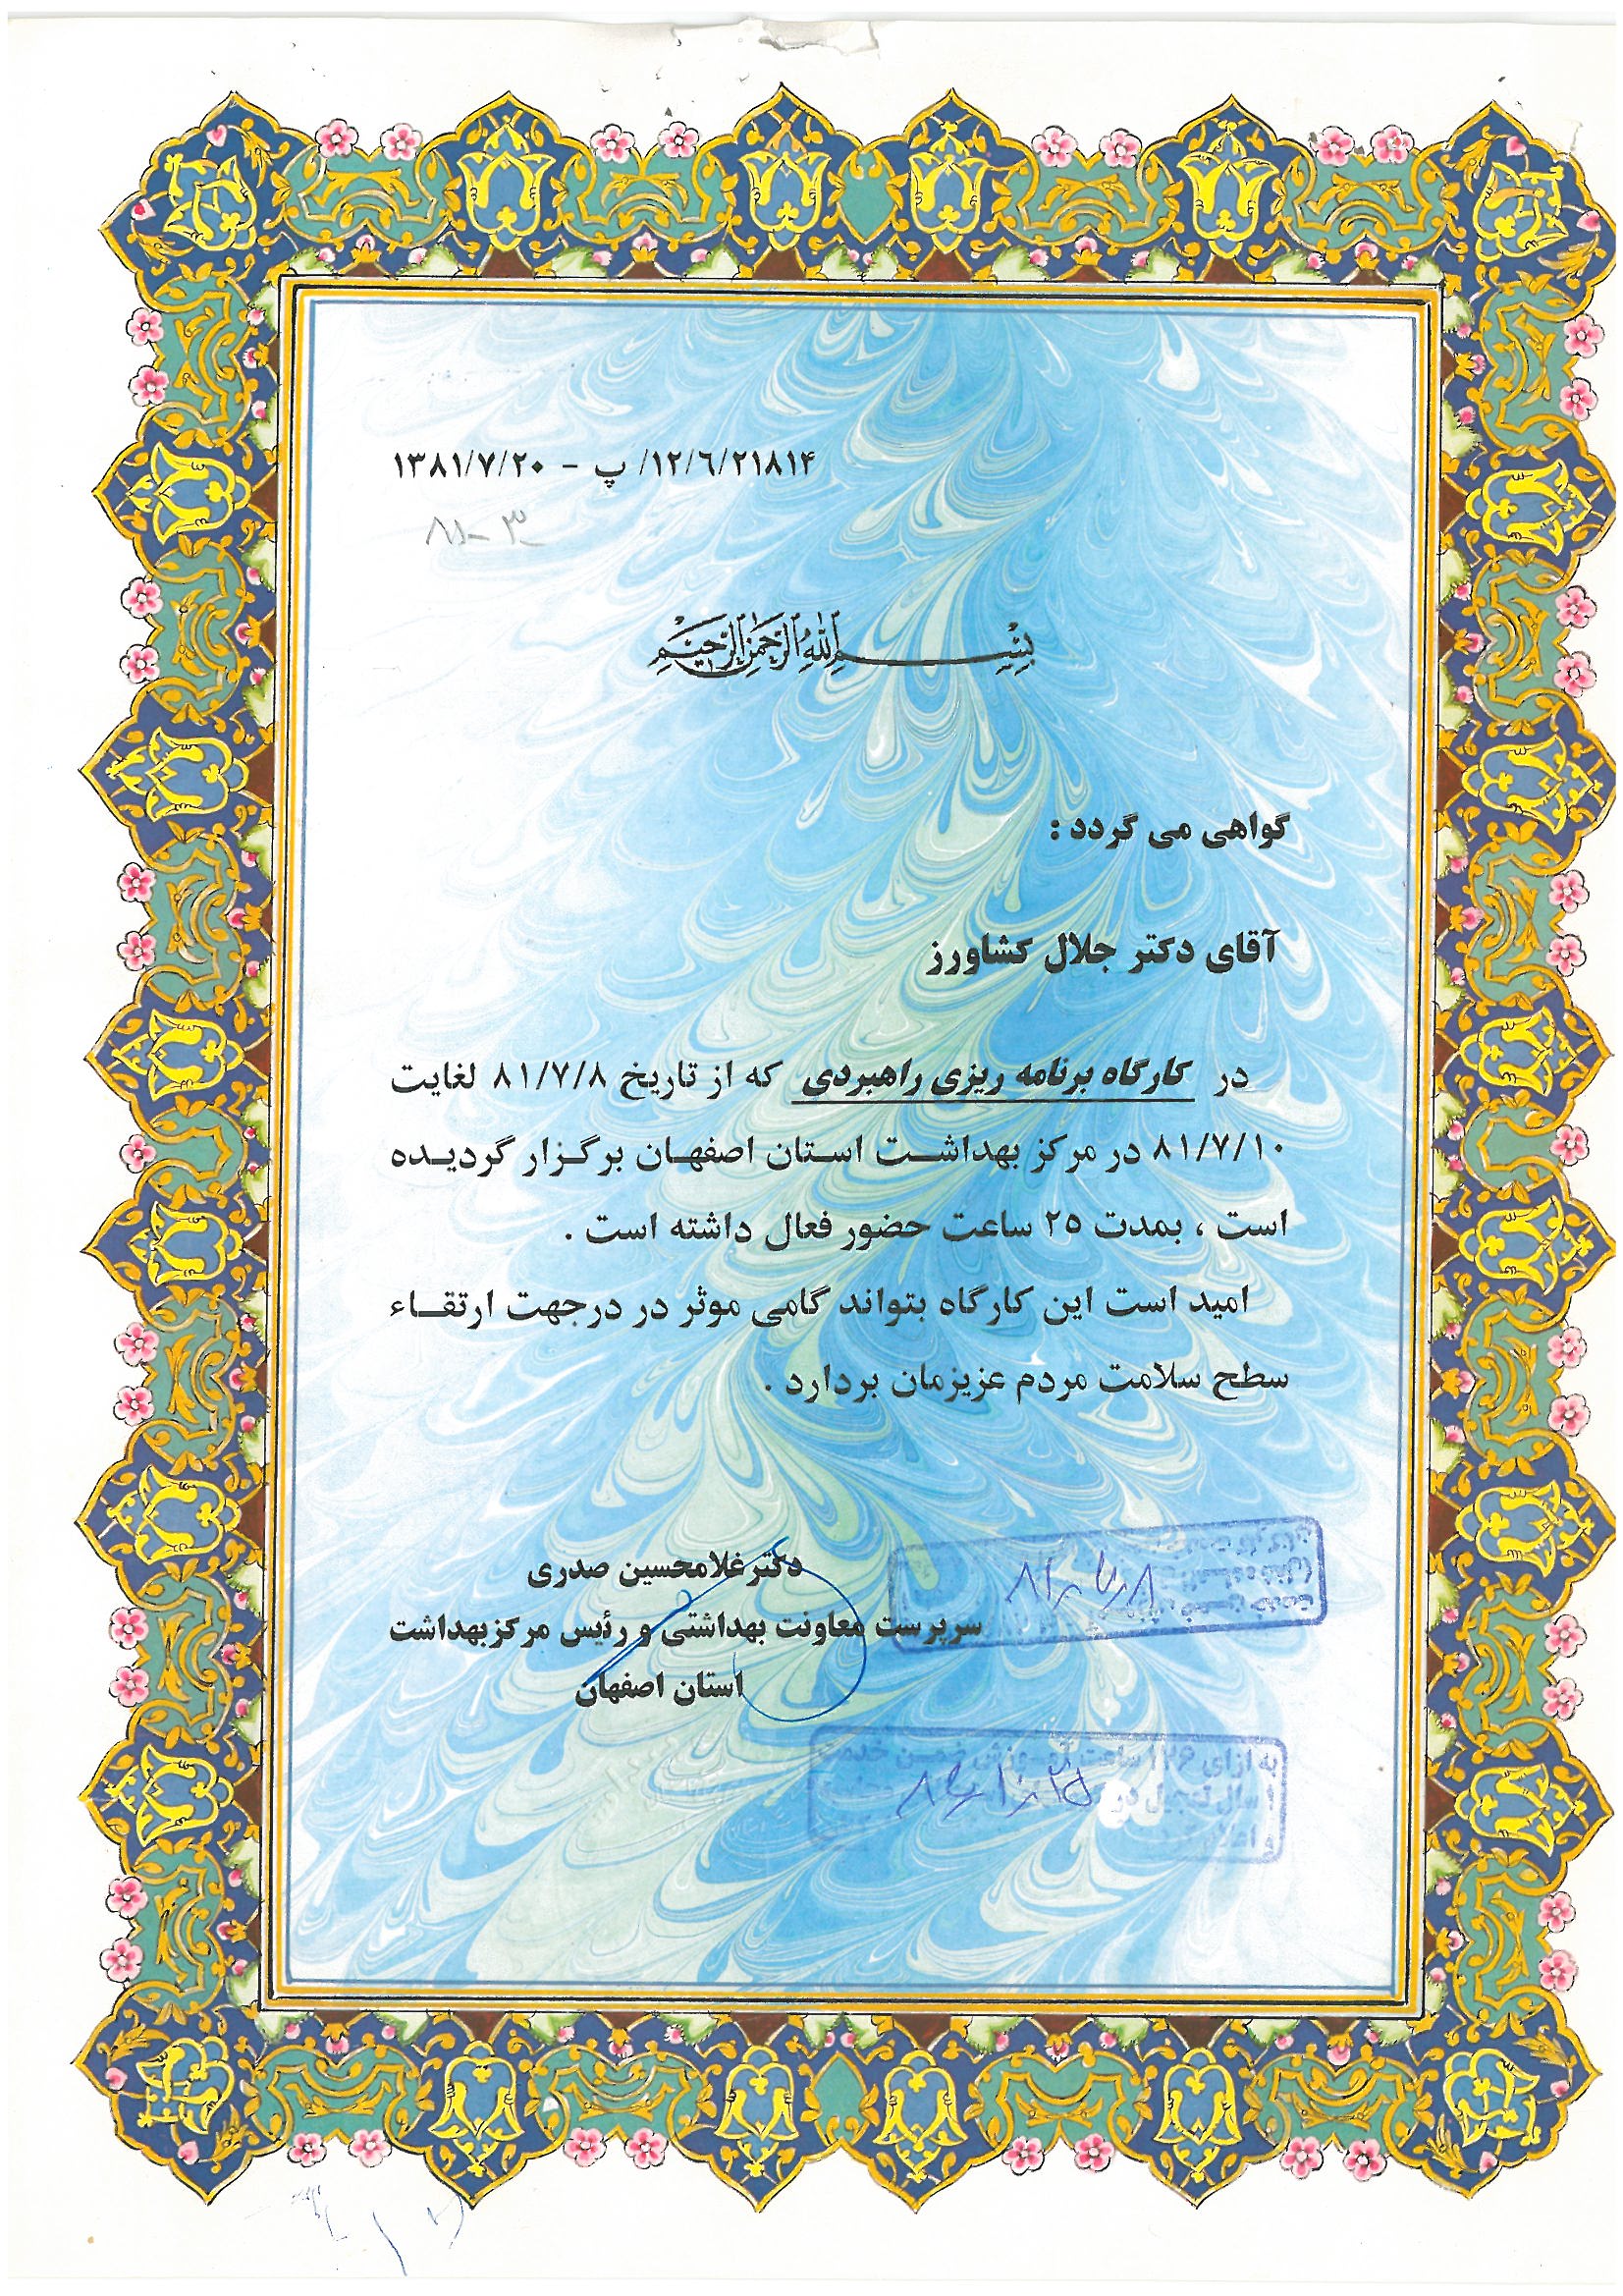 ۱۲/٦/۲۱۸۱۴/ پ - ۱۳۸۱/۷/۲۰
بسم الله الرحمن الرحیم
گواهی می گردد :
آقای دکتر جلال کشاورز
در کارگاه برنامه ریزی راهبردی که از تاریخ ۸۱/۷/۸ لغایت
۸۱/۷/۱۰ در مرکز بهداشت استان اصفهان برگزار گردیده
است ، بمدت ۲۵ ساعت حضور فعال داشته است .
امید است این کارگاه بتواند گامی موثر در درجهت ارتقاء
سطح سلامت مردم عزیزمان بردارد .
دکتر غلامحسین صدری
سرپرست معاونت بهداشتی و رئیس مرکز بهداشت
استان اصفهان
به ازای ۱۲۶ ساعت آموزش ضمن خدمت